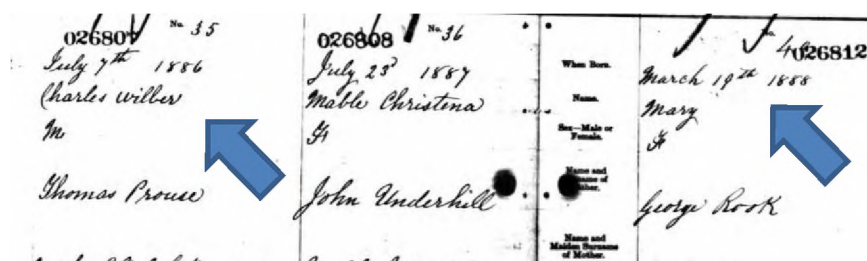 No. 35
026807
July 7th 1886
Charles Wilber
M
Thomas Prouse
No. 36
026808
July 23d 1887
Mable Christena
F
John Underhill
When Born.
Name.
Sex—Male or
Female.
Name and
of
Name and
Maiden Surname
of Mother.
No.
026812
March 19th 1888
Mary
F
George Rook